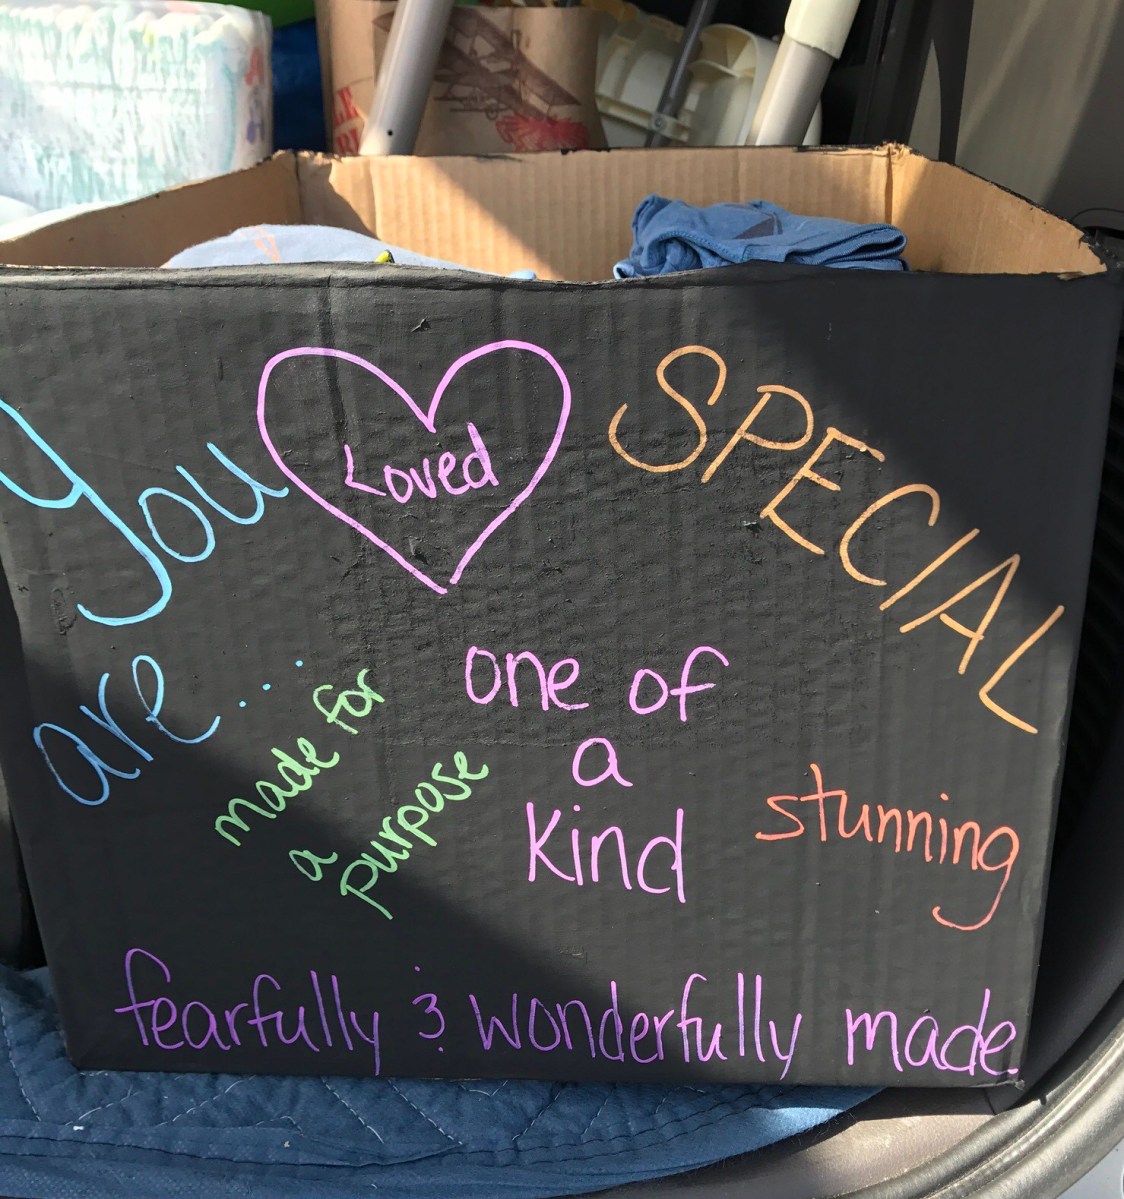 You
are...
Loved
SPECIAL
made for
a
purpose
one of
a
kind
stunning
fearfully & wonderfully made